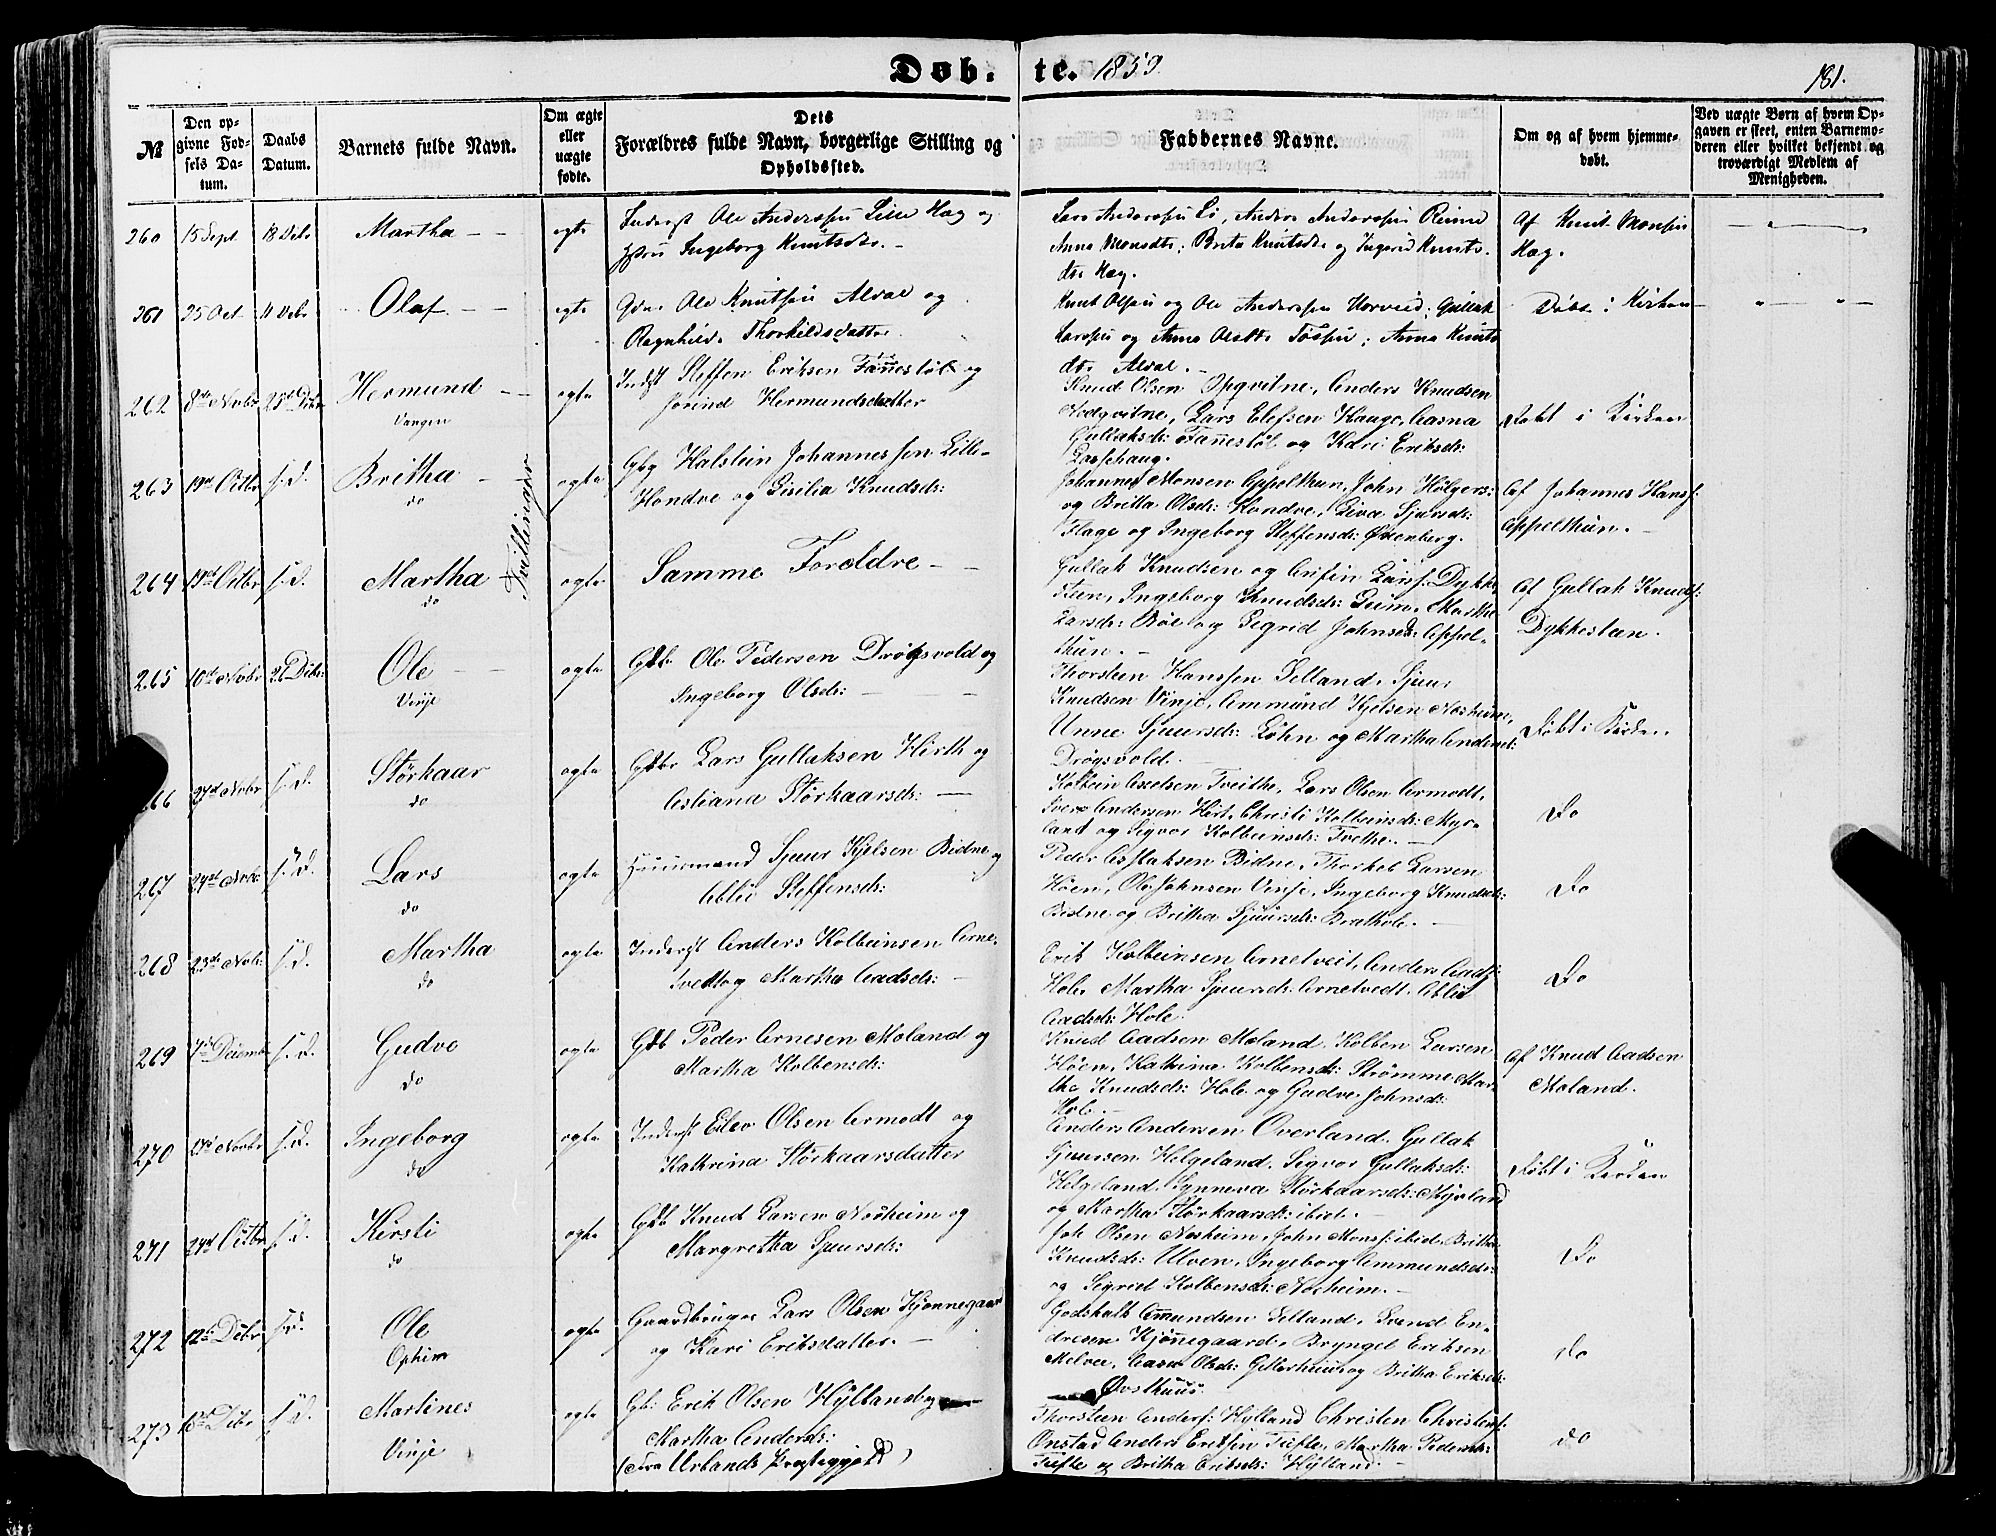 Døb. te. 1859.
181.
№
Den op-
givne Fød-
sels Da-
tum.
Daabs
Datum.
Barnets fulde Navn.
Om ægte
eller
uægte
fødte.
Dets
Forældres fulde Navn, borgerlige Stilling og
Opholdssted.
Faddernes Navne.
Om og af hvem hjemme-
døbt.
Ved uægte Børn af hvem Op-
gaven er skeet, enten Barnemo-
deren eller hvilket bekjendt og
troværdigt Medlem af
Menigheden.
260 15 Sept 18 Debr Martha egte
Inderst Ole Andersen Lille Hæg og
Ingeborg Knutsdtr.
Lars Andersen Li, Anders Andersen Reime
Anna Monsdtr, Brita Knutsdtr og Ingerid Knuts-
dtr Hæg.
Af Knut Monsen
Hæg.
261 25 Oct 11 Debr Olaf egte
Ole Knutsen Alvæ og
Ragnhild Thorkildsdatter
Knut Olsen og Ole Andersen Horveid, Gullak
Larsen og Anna Olsdtr; Anna Knuts
dtr Alvæ.
Døbt i Kirken
262 8de Novbr Debr Hermund ægte
Vangen
Indst Steffen Eriksen Fænestøl og
Jorind Hermundsdatter
Knud Olsen Opqvitne, Anders Knudsen
Nedqvitne, Lars Elefsen Hauge, Aasna
Gullaksd: Fænestøl og Kari Eriksd:
Døbt i Kirken
263 19de Octbr s.d. Britha ægte
do
Tvillinger
Gbg Halstein Johannessen Lille-
Hondve og Sisilia Knudsd:
Johannes Monsen Appelthun, John Holgers:
og Britta Olsd: Hondve, Siva Sjursd:
Flage og Ingeborg Steffensd: Øvenberg.
Af Johannes Hans:
Appelthun.
264 19de Octbr s.d. Martha ægte
do
Samme Foreldre
Gullak Knudsen og Arfin Lars: Dykke
steen, Ingeborg Knudsd: Geim, Martha
Larsd: Bøe og Sigrid Johnsd: Appel-
thun.
Af Gullak Knuds:
Dykkesteen.
265 10de Novbr 26 Debr: Ole ægte
Vinje
Gdb Ole Pedersen Drøgsvold og
Ingeborg Olsd:
Thorstein Hanssen Selland, Sjur
Knudsen Vinje, Ammund Kjelsen Norheim,
Unne Sjursd: Løhn og Martha Andersd:
Drøgsvold.
Døbt i Kirken
266 Novbr s.d. Størkaar ægte
do
Gdbr Lars Gullaksen Hirth og
Astiana Størkaarsd:
Kolbein Axelsen Tveithe, Lars Olsen Armodt,
Iver Andersen Hirt, Christi Kolbeinsd: Myr-
land og Sigvor Kolbeinsd: Tvethe.
Do
267 Novbr s.d. Lars ægte
do
Huusmand Sjur Kjelsen Bidne og
Ablie Steffensd:
Peder Aslaksen Bidne, Thorkel Larsen
Høen, Ole Johnsen Vinje, Ingeborg Knudsd:
Bidne og Britha Sjursd: Brathole.
Do
268 23de Novb: s.d. Martha ægte
do
Inderst Anders Kolbeinsen Arne-
tvedt og Martha Aadsd:
Erik Kolbeinsen Arnetveit, Anders Aads:
Hole, Martha Sjursd: Arnetvedt, Ablie
Aadsd: Hole.
Do
269 7de Decembr s.d. Gudve ægte
do
Gdb Peder Arnesen Moland og
Martha Kolbensd:
Knud Aadsen Moland, Kolben Larsen
Høen, Kathrina Kolbensd: Strømme, Mar-
tha Knudsd: Hole og Gudve Johnsd:
Hole.
Af Knud Aadsen
Moland.
270 Novbr s.d. Ingeborg ægte
do
Inderst Eilev Olsen Armodt og
Kathrina Størkaarsdatter
Anders Andersen Overland, Gullak
Sjursen Helgeland, Sigvor Gullaksd:
Helgeland, Synneva Størkaarsd: Myrland
og Martha Størkaarsd: ibid.
Døbt i Kirken
271 24de Octbr s.d. Kirsti ægte
do
Gdb Knud Larsen Norheim og
Margretha Sjursd:
Joh Olsen Norheim, John Mons: ibid, Britha
Knudsd: Ulven, Ingeborg Ammundsd:
og Sigrid Kolbensd: Norheim.
Do
272 12te Debr s.d. Ole ægte
Opheim
Gaardbruger Lars Olsen Kjønnegaard
og Kari Eriksdatter.
Godskalk Amundsen Selland, Svend En-
dresen Kjønnegaard, Bryngel Eriksen
Melve, Aase Olsd: Gjellerheim og Britha Eriksd:
Øvsthuus.
Do
273 13de Debr s.d. Martines ægte
Vinje
Gb: Erik Olsen Hylland og
Martha Andersd:
(fra Urlands Prestegjeld)
Thorsteen Anders: Hylland Christen Christens:
Onstad Anders Eriksen Tufte, Martha Pedersd:
Tufte og Britha Eriksd: Hylland.
Do